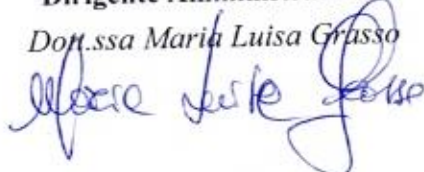 Dirigente
Dott.ssa Maria Luisa Grasso
Maria Luisa Grasso